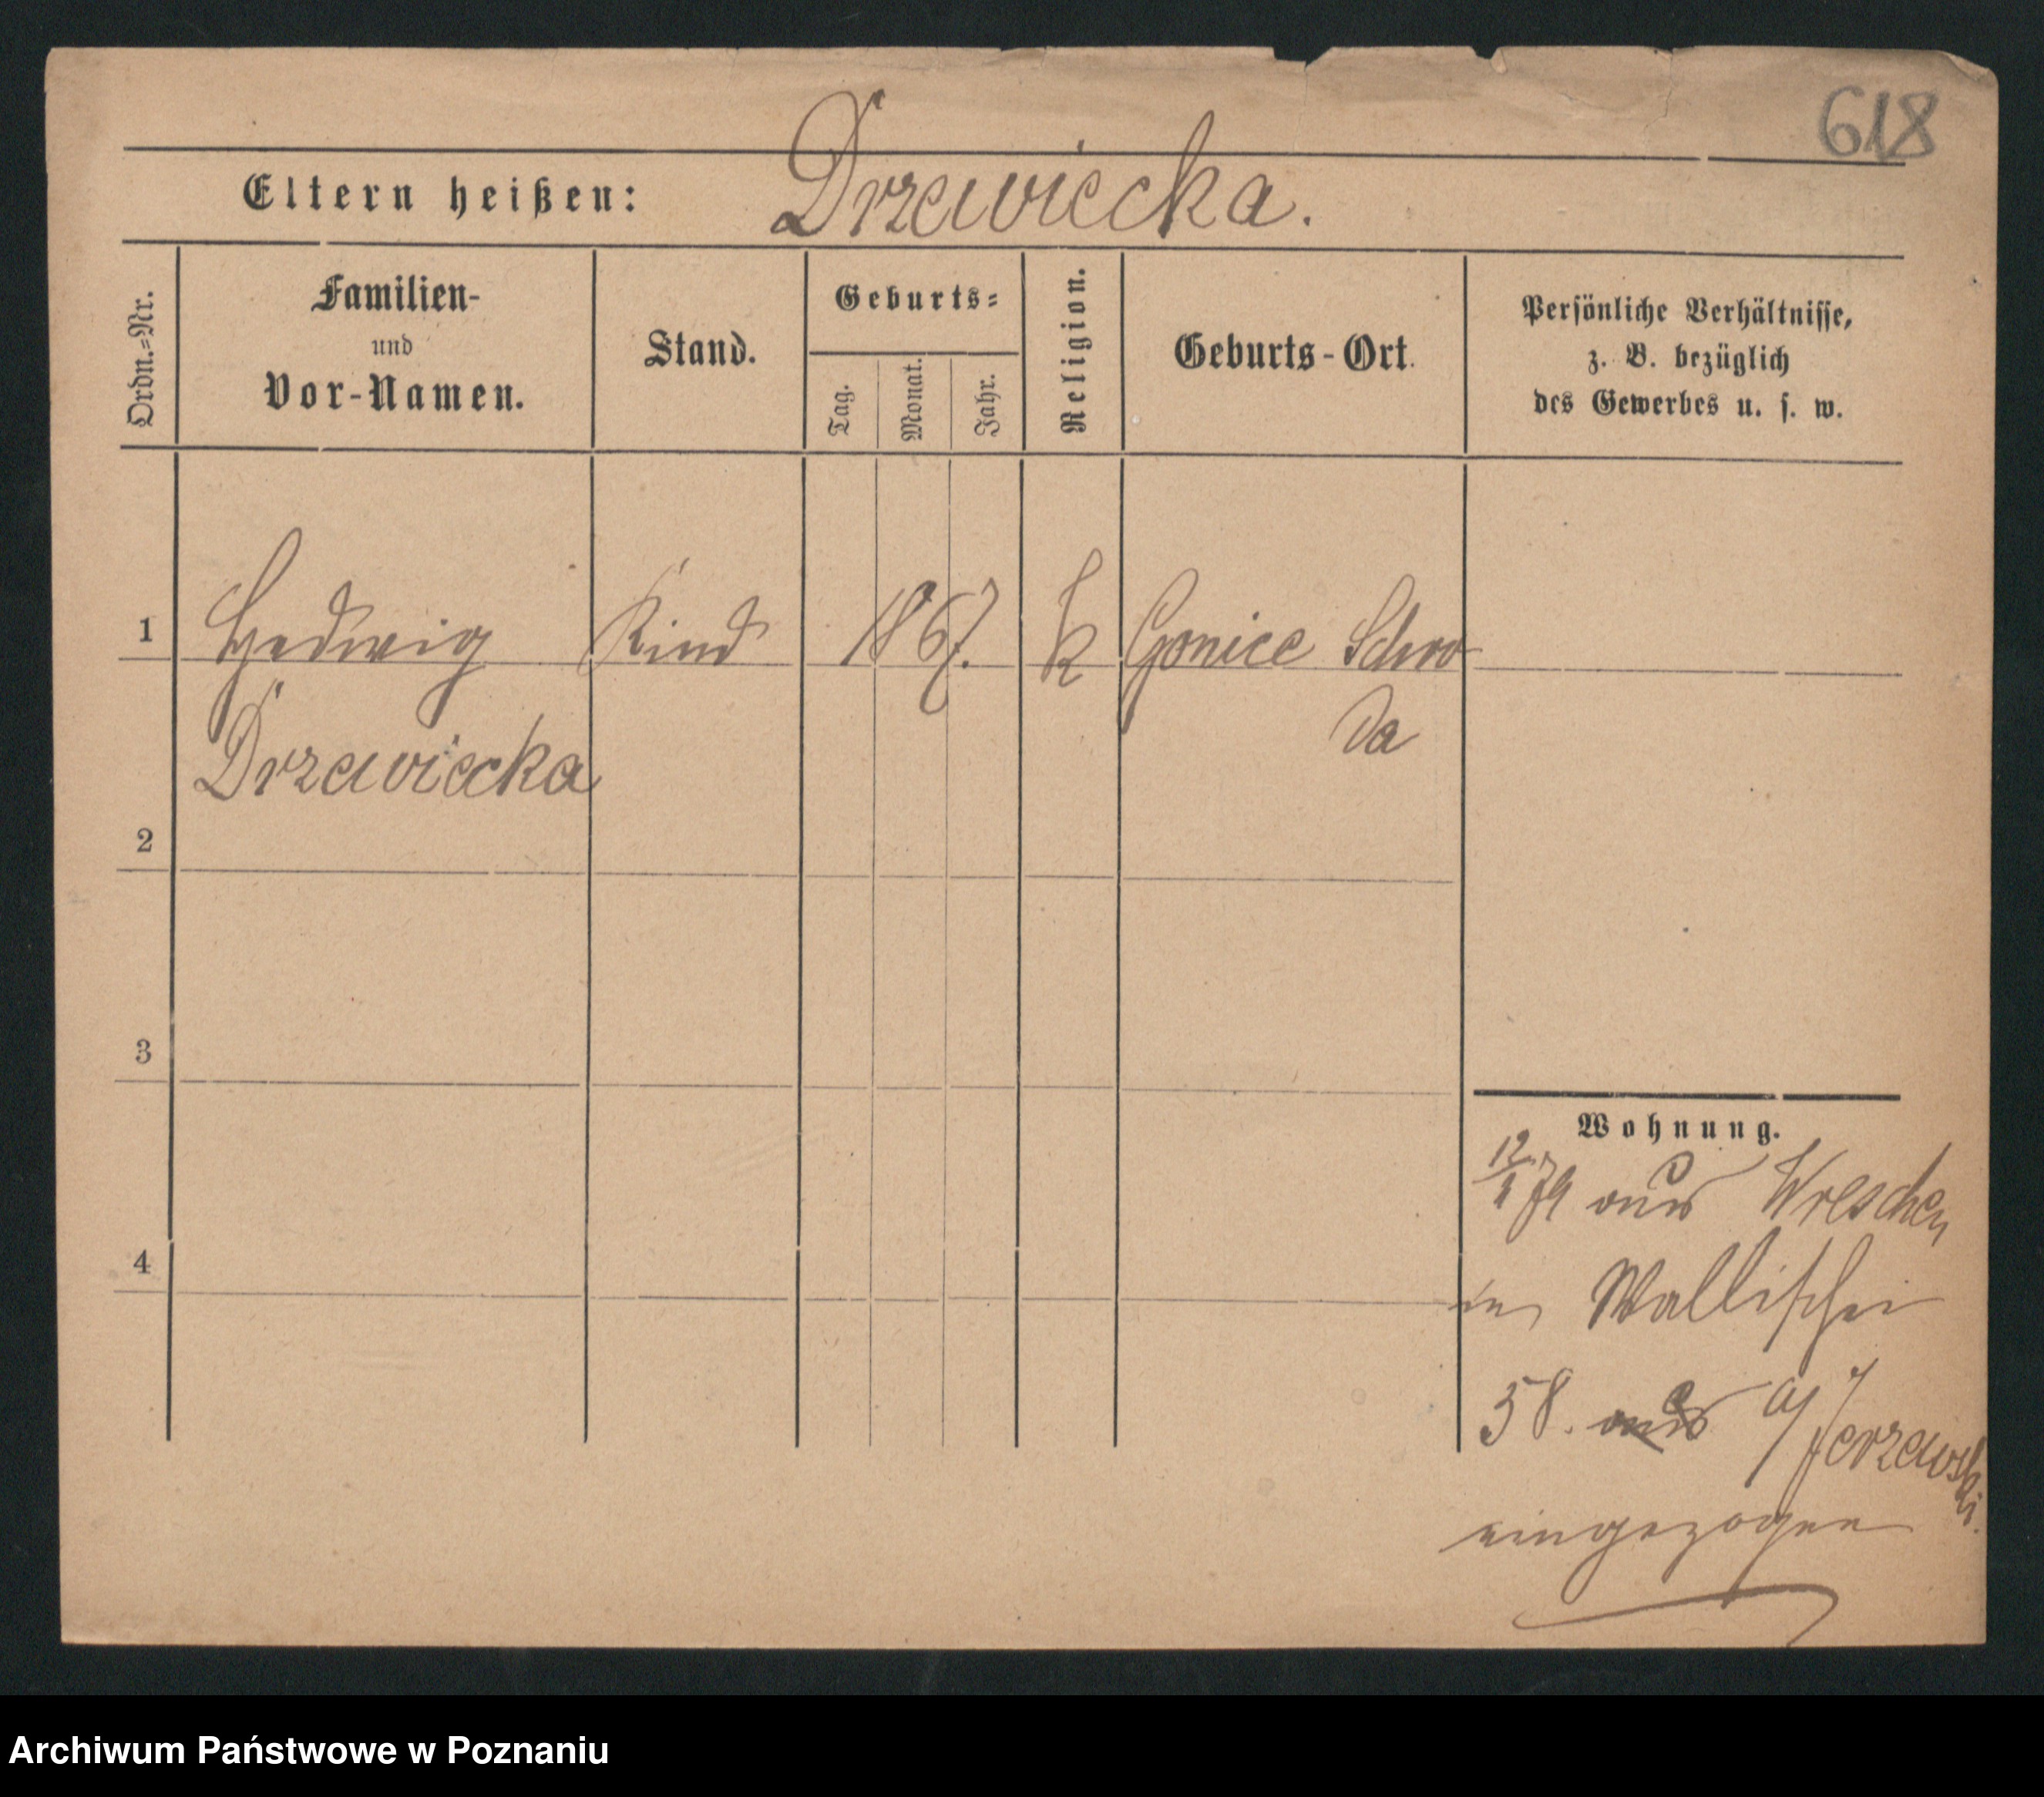 618
Eltern heißen: Drzewiecka.
Ordn.-Nr.
Familien-
und
Vor-Namen.
Stand.
Geburts-
Tag.
Monat.
Jahr.
Religion.
Geburts-Ort.
Persönliche Verhältnisse,
z. B. bezüglich
des Gewerbes u. s. w.
1 Hedwig Kind 1867. k Gonice Schro
da
Drzewiecka
2
3
4
Wohnung.
12/1 79 aus Wreschen
in Wallischei
58. aus a/ Jerzewski.
eingezogen
Archiwum Państwowe w Poznaniu